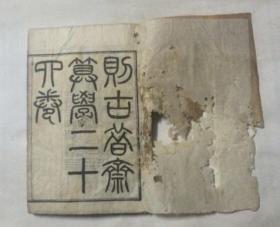 則古昔齋
算學二十
四卷